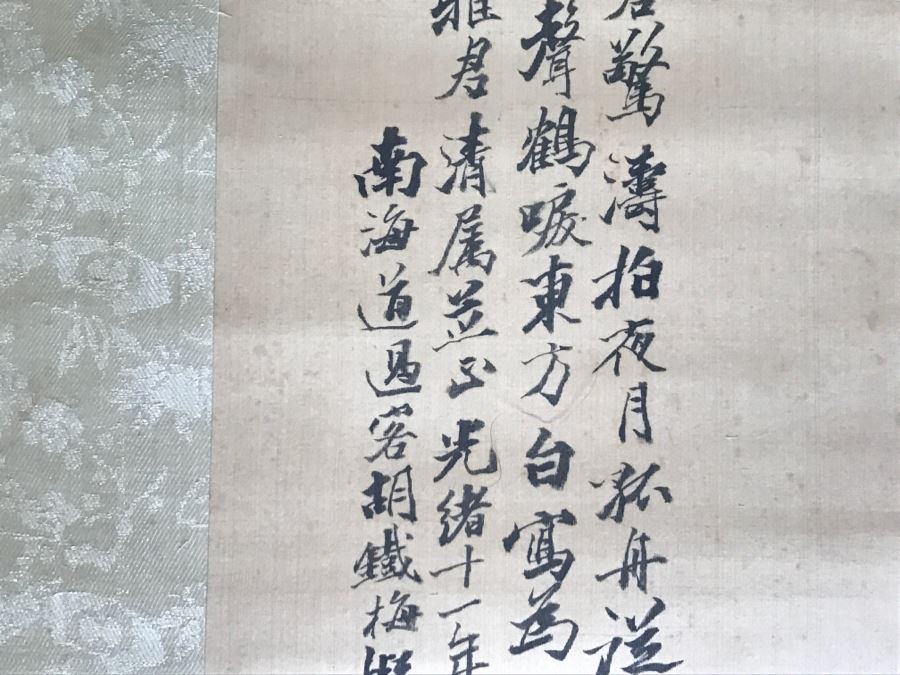 驚濤拍夜月孤舟
聲鶴唳東方白寫為
雅君清屬並正光緒十一年
南海道過客胡鐵梅